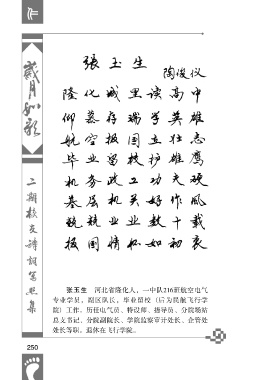 张玉生
陶俊仪
隆化城里读高中
仰慕存瑞学英雄
航空报国立壮志
毕业留校护雄鹰
机务政工功夫硬
基层机关好作风
兢兢业业数十载
报国情怀如初衷
岁月如歌
二期校友诗词写照集
张玉生 河北省隆化人，一中队216班航空电气
专业学员，副区队长，毕业留校（后为民航飞行学
院）工作，历任电气员、特设师、指导员、分院场站
总支书记、分院副院长、学院监察审计处长、企管处
处长等职。退休在飞行学院。
250